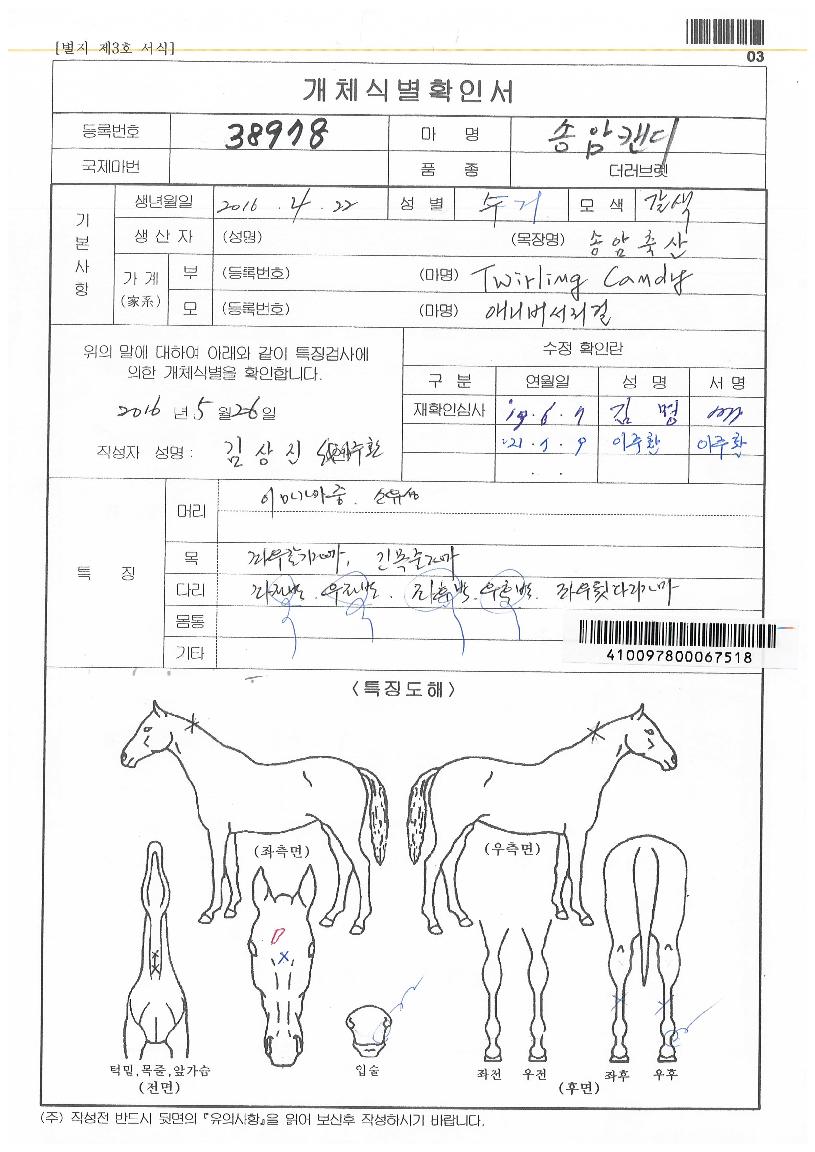 [별지 제3호 서식]
03
개체식별확인서
등록번호 38978 마 명 송암캔디
국제마번 품 종 더러브렛
기본사항
생년월일 2016 . 4 . 22 성 별 모 색 갈색
생 산 자 (성명) (목장명) 송암축산
가 계 (家系) 부 (등록번호) (마명) Twirling Candy
모 (등록번호) (마명) 애니버서리걸
위의 말에 대하여 아래와 같이 특징검사에
의한 개체식별을 확인합니다.
2016 년 5 월 26 일
작성자 성명 : 김상진
수정 확인란
구 분 연월일 성 명 서 명
재확인심사 김 명
이주환 이주환
특 징
머리
목
다리
몸통
기타
410097800067518
<특징도해>
(좌측면) (우측면)
턱밑,목줄,앞가슴 입술 좌전 우전 좌후 우후
(전면) (후면)
(주) 작성전 반드시 뒷면의 『유의사항』을 읽어 보신후 작성하시기 바랍니다.